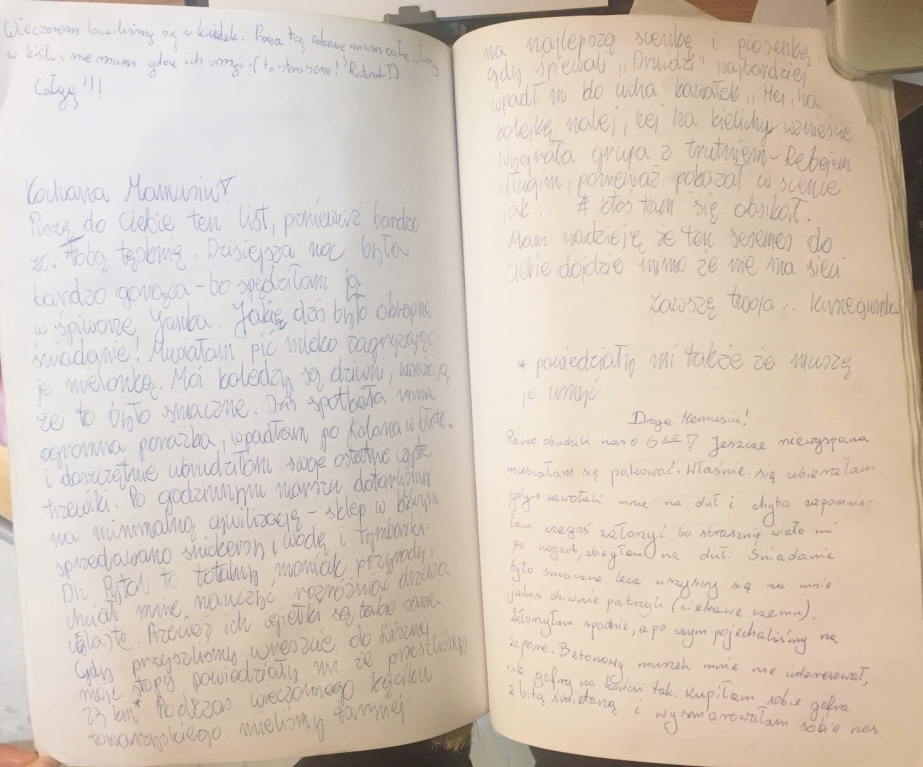 Wieczorem bawiliśmy się w kisielek. Przez tą zabawę mam całą
w kisilu i nie mam gdzie ich umyć. (to straszne!
Całuję!!!
Kochana Mamusiu!
Piszę do Ciebie ten list, ponieważ bardzo
za Tobą tęsknię. Dzisiejsza noc była
bardzo gorąca - bo spędziłam ją
w śpiworze Janka. Jakie dziś było okropne
śniadanie! Musiałam pić mleko zagryzając
je mielonką. Moi koledzy są dziwni, uważają
że to było smaczne. Dziś spotkała mnie
ogromna porażka, wpadłam po kolana w błoto.
i doszczętnie ubrudziłam swoje ostatnie czyste
trzewiki. Po godzinnym marszu dotarliśmy
na minimalną cywilizację - sklep w którym
sprzedawano snickersy, wodę i tymbarki.
Dh Pytol to totalny maniak przyrody,
chciał mnie nauczyć rozróżniać drzewa
iglaste. Przecież ich igiełki są takie same.
Gdy przyszliśmy wreszcie do
moje stopy powiedziały mi że przeszliśmy
23 km*. Podczas wieczornego
towarzyskiego mieliśmy
na najlepszą scenkę i piosenkę.
gdy śpiewali "Druidzi" najbardziej
wpadł m do ucha kawałek "Hej, na
kolejkę nalej, hej na kielichy wznieście
Wygrała grupa z trutniem - Rębajem
długim, ponieważ pokazał w scence
jak .. # ktoś tam się obsikał.
Mam nadzieję że ten sesemes do
ciebie dojdzie mimo że nie ma sieci.
zawszę twoja .. Kunegunda
* powiedziały mi także że muszę
je umyć.
Droga Mamusiu!
Rano obudzili nas o 6 Jeszcze niewyspana
musiałam się pakować. Właśnie się ubierałam
gdy zawołali mnie na duł i chyba zapomnia-
łam czegoś załorzyć bo strasznie wiało mi
po nogach, zbiegłam na duł. Śniadanie
było smaczne lecz wszyscy się na mnie
jakoś dziwnie patrzyli (ciekawe czemu).
Załorzyłam spodnie, a po czym pojechaliśmy na
zaporę. Betonowy murek mnie nie interesował,
ale gofry na końcu tak. Kupiłam sobie gofra
z bitą śmietaną i wysmarowałam sobie nos.